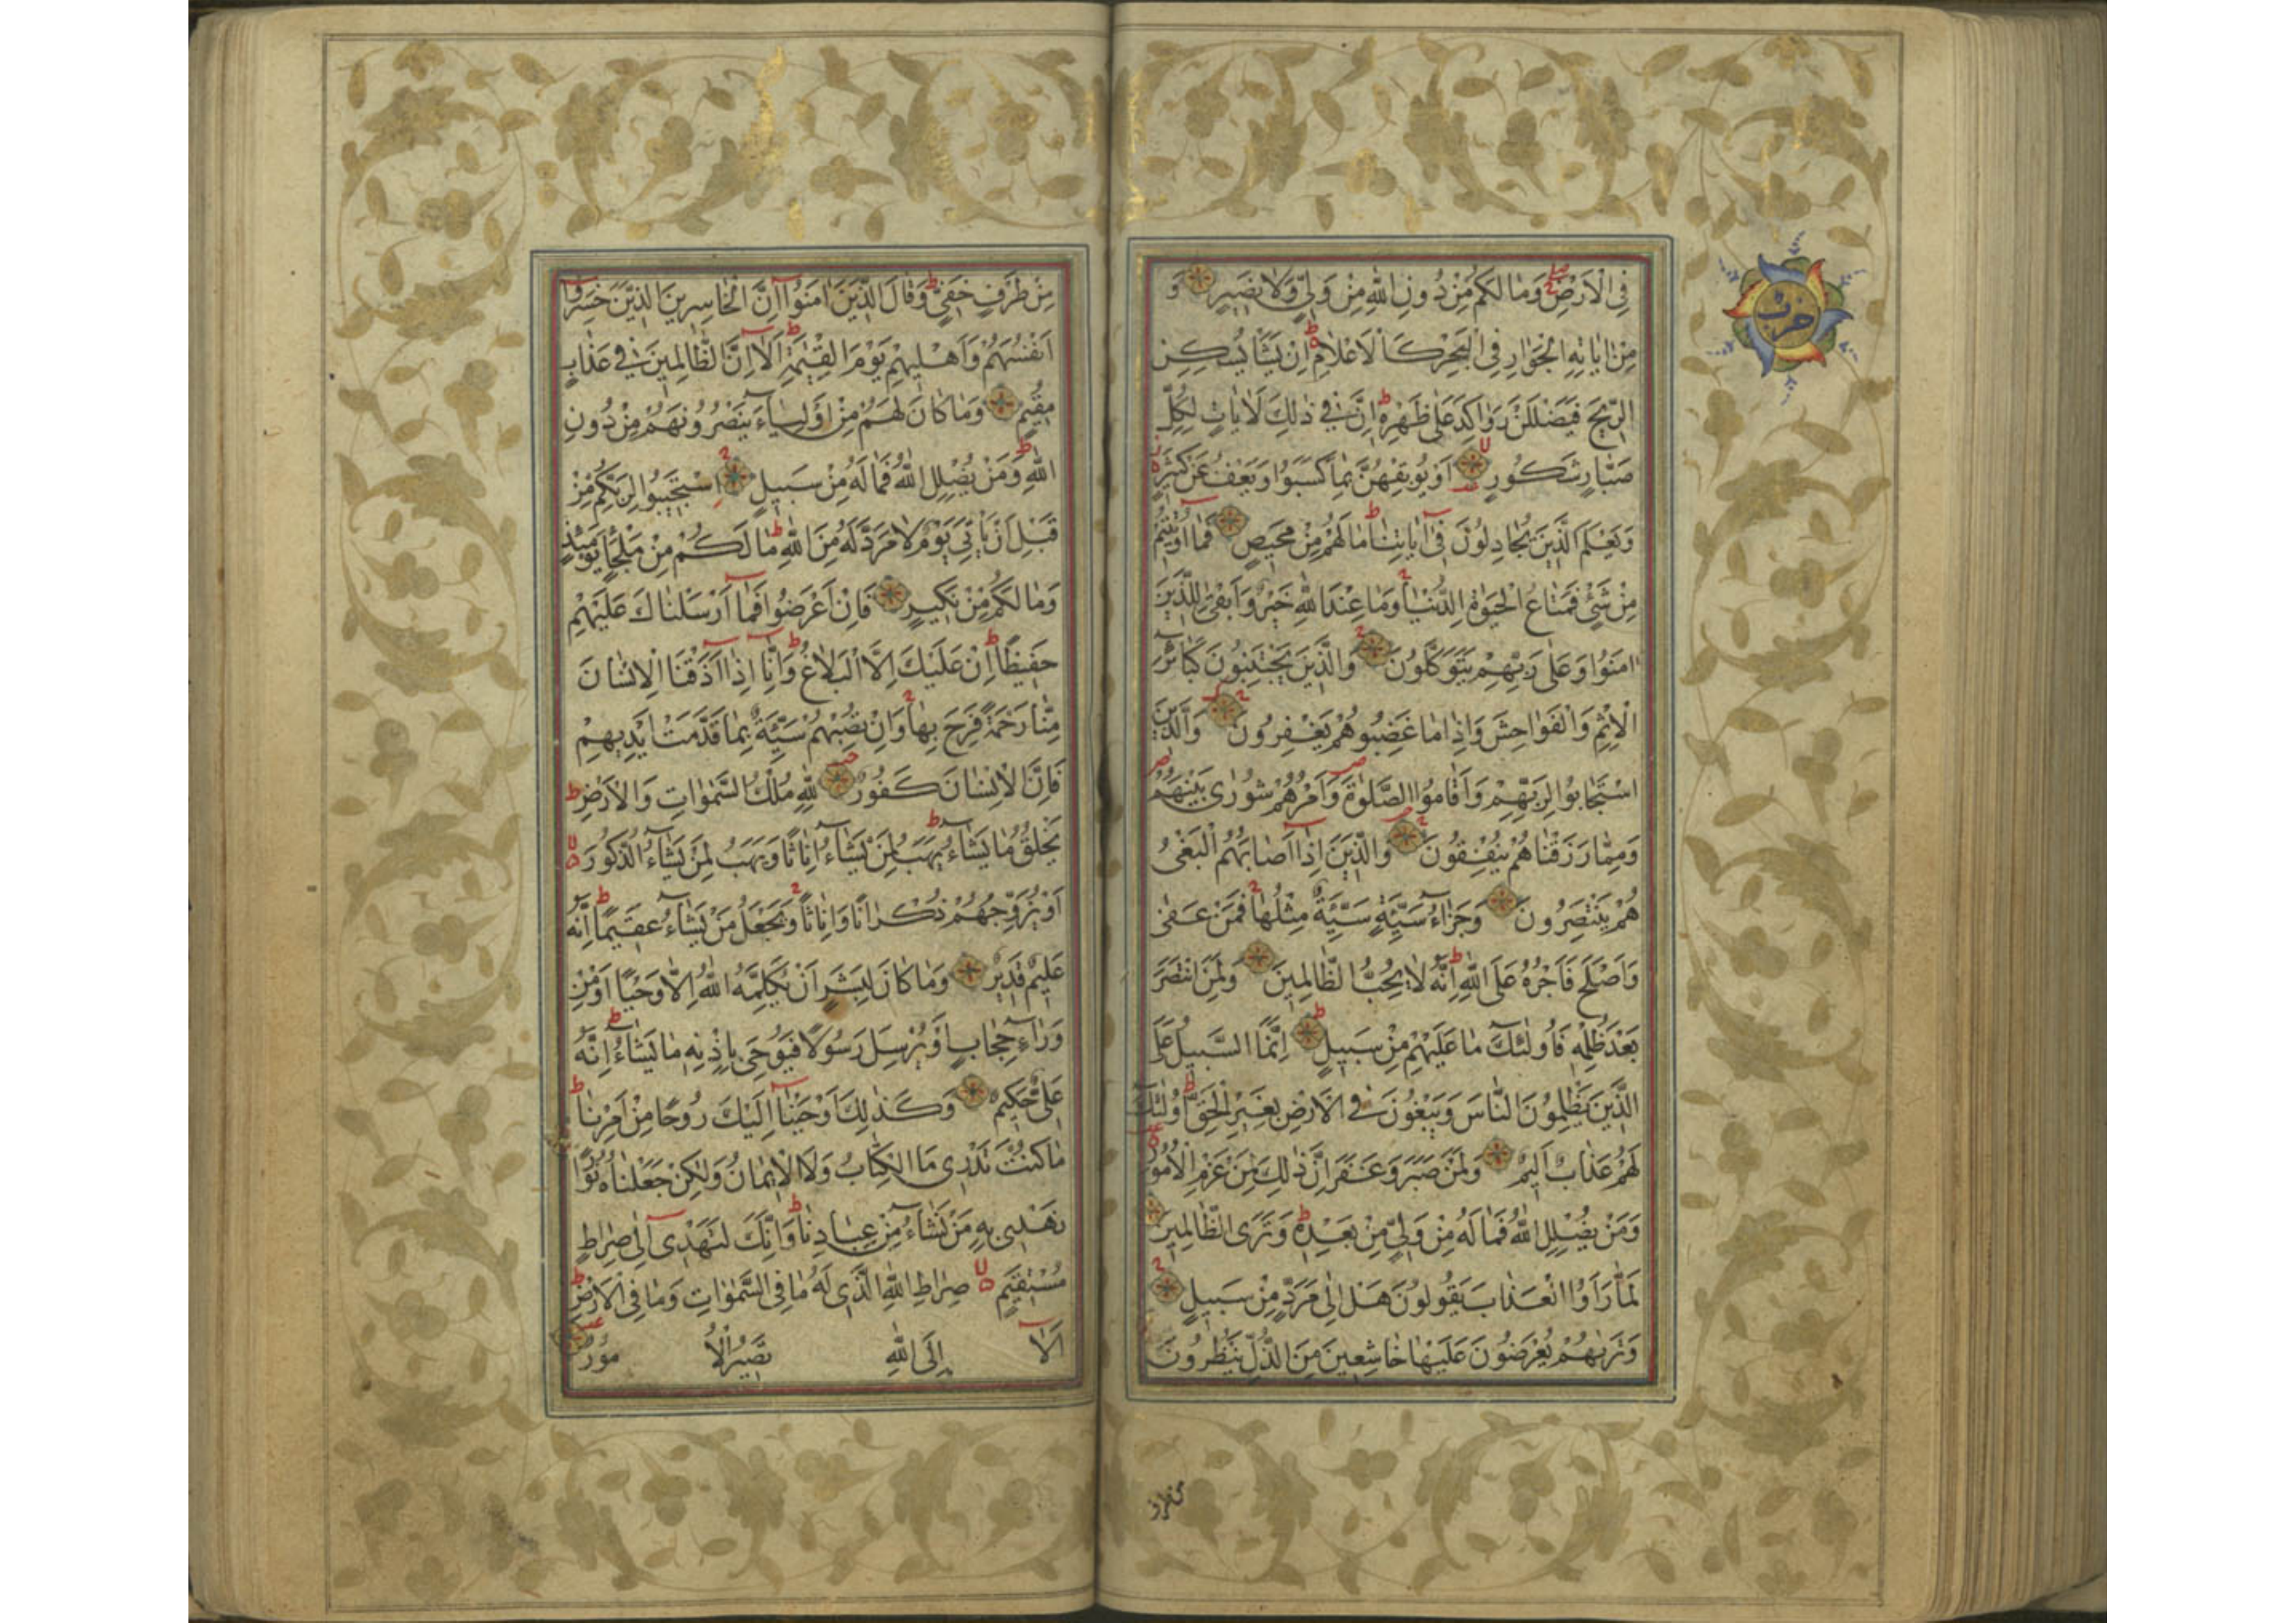 حزب
فِى الْاَرْضِ وَمَا لَكُمْ مِنْ دُونِ اللّٰهِ مِنْ وَلِىٍّ وَلَا نَصِيرٍ وَ
مِنْ اٰيَاتِهِ الْجَوَارِ فِى الْبَحْرِ كَالْاَعْلَامِ اِنْ يَشَأْ يُسْكِنِ
الرِّيحَ فَيَضْلَلْنَ رَوَاكِدَ عَلٰى ظَهْرِهِ اِنَّ فِى ذٰلِكَ لَاٰيَاتٍ لِكُلِّ
صَبَّارٍ شَكُورٍ اَوْ يُوبِقْهُنَّ بِمَا كَسَبُوا وَيَعْفُ عَنْ كَثِيرٍ
وَيَعْلَمَ الَّذِينَ يُجَادِلُونَ فِى اٰيَاتِنَا مَا لَهُمْ مِنْ مَحِيصٍ فَمَا اُوتِيتُمْ
مِنْ شَىْءٍ فَمَتَاعُ الْحَيٰوةِ الدُّنْيَا وَمَا عِنْدَ اللّٰهِ خَيْرٌ وَاَبْقٰى لِلَّذِينَ
اٰمَنُوا وَعَلٰى رَبِّهِمْ يَتَوَكَّلُونَ وَالَّذِينَ يَجْتَنِبُونَ كَبَائِرَ
الْاِثْمِ وَالْفَوَاحِشَ وَاِذَا مَا غَضِبُوا هُمْ يَغْفِرُونَ وَالَّذِينَ
اسْتَجَابُوا لِرَبِّهِمْ وَاَقَامُوا الصَّلٰوةَ وَاَمْرُهُمْ شُورٰى بَيْنَهُمْ
وَمِمَّا رَزَقْنَاهُمْ يُنْفِقُونَ وَالَّذِينَ اِذَا اَصَابَهُمُ الْبَغْىُ
هُمْ يَنْتَصِرُونَ وَجَزَاءُ سَيِّئَةٍ سَيِّئَةٌ مِثْلُهَا فَمَنْ عَفٰى
وَاَصْلَحَ فَاَجْرُهُ عَلَى اللّٰهِ اِنَّهُ لَا يُحِبُّ الظَّالِمِينَ وَلَمَنِ انْتَصَرَ
بَعْدَ ظُلْمِهِ فَاُولٰئِكَ مَا عَلَيْهِمْ مِنْ سَبِيلٍ اِنَّمَا السَّبِيلُ عَلَى
الَّذِينَ يَظْلِمُونَ النَّاسَ وَيَبْغُونَ فِى الْاَرْضِ بِغَيْرِ الْحَقِّ اُولٰئِكَ
لَهُمْ عَذَابٌ اَلِيمٌ وَلَمَنْ صَبَرَ وَغَفَرَ اِنَّ ذٰلِكَ لَمِنْ عَزْمِ الْاُمُورِ
وَمَنْ يُضْلِلِ اللّٰهُ فَمَا لَهُ مِنْ وَلِىٍّ مِنْ بَعْدِهِ وَتَرَى الظَّالِمِينَ
لَمَّا رَاَوُا الْعَذَابَ يَقُولُونَ هَلْ اِلٰى مَرَدٍّ مِنْ سَبِيلٍ
وَتَرٰيهُمْ يُعْرَضُونَ عَلَيْهَا خَاشِعِينَ مِنَ الذُّلِّ يَنْظُرُونَ
مِنْ طَرْفٍ خَفِىٍّ وَقَالَ الَّذِينَ اٰمَنُوا اِنَّ الْخَاسِرِينَ الَّذِينَ خَسِرُوا
اَنْفُسَهُمْ وَاَهْلِيهِمْ يَوْمَ الْقِيٰمَةِ اَلَا اِنَّ الظَّالِمِينَ فِى عَذَابٍ
مُقِيمٍ وَمَا كَانَ لَهُمْ مِنْ اَوْلِيَاءَ يَنْصُرُونَهُمْ مِنْ دُونِ
اللّٰهِ وَمَنْ يُضْلِلِ اللّٰهُ فَمَا لَهُ مِنْ سَبِيلٍ اِسْتَجِيبُوا لِرَبِّكُمْ مِنْ
قَبْلِ اَنْ يَأْتِىَ يَوْمٌ لَا مَرَدَّ لَهُ مِنَ اللّٰهِ مَا لَكُمْ مِنْ مَلْجَأٍ يَوْمَئِذٍ
وَمَا لَكُمْ مِنْ نَكِيرٍ فَاِنْ اَعْرَضُوا فَمَا اَرْسَلْنَاكَ عَلَيْهِمْ
حَفِيظًا اِنْ عَلَيْكَ اِلَّا الْبَلَاغُ وَاِنَّا اِذَا اَذَقْنَا الْاِنْسَانَ
مِنَّا رَحْمَةً فَرِحَ بِهَا وَاِنْ تُصِبْهُمْ سَيِّئَةٌ بِمَا قَدَّمَتْ اَيْدِيهِمْ
فَاِنَّ الْاِنْسَانَ كَفُورٌ لِلّٰهِ مُلْكُ السَّمٰوَاتِ وَالْاَرْضِ
يَخْلُقُ مَا يَشَاءُ يَهَبُ لِمَنْ يَشَاءُ اِنَاثًا وَيَهَبُ لِمَنْ يَشَاءُ الذُّكُورَ
اَوْ يُزَوِّجُهُمْ ذُكْرَانًا وَاِنَاثًا وَيَجْعَلُ مَنْ يَشَاءُ عَقِيمًا اِنَّهُ
عَلِيمٌ قَدِيرٌ وَمَا كَانَ لِبَشَرٍ اَنْ يُكَلِّمَهُ اللّٰهُ اِلَّا وَحْيًا اَوْ مِنْ
وَرَاءِ حِجَابٍ اَوْ يُرْسِلَ رَسُولًا فَيُوحِىَ بِاِذْنِهِ مَا يَشَاءُ اِنَّهُ
عَلِىٌّ حَكِيمٌ وَكَذٰلِكَ اَوْحَيْنَا اِلَيْكَ رُوحًا مِنْ اَمْرِنَا
مَا كُنْتَ تَدْرِى مَا الْكِتَابُ وَلَا الْاِيمَانُ وَلٰكِنْ جَعَلْنَاهُ نُورًا
نَهْدِى بِهِ مَنْ نَشَاءُ مِنْ عِبَادِنَا وَاِنَّكَ لَتَهْدِى اِلٰى صِرَاطٍ
مُسْتَقِيمٍ صِرَاطِ اللّٰهِ الَّذِى لَهُ مَا فِى السَّمٰوَاتِ وَمَا فِى الْاَرْضِ
اَلَا اِلَى اللّٰهِ تَصِيرُ الْاُ مُورُ